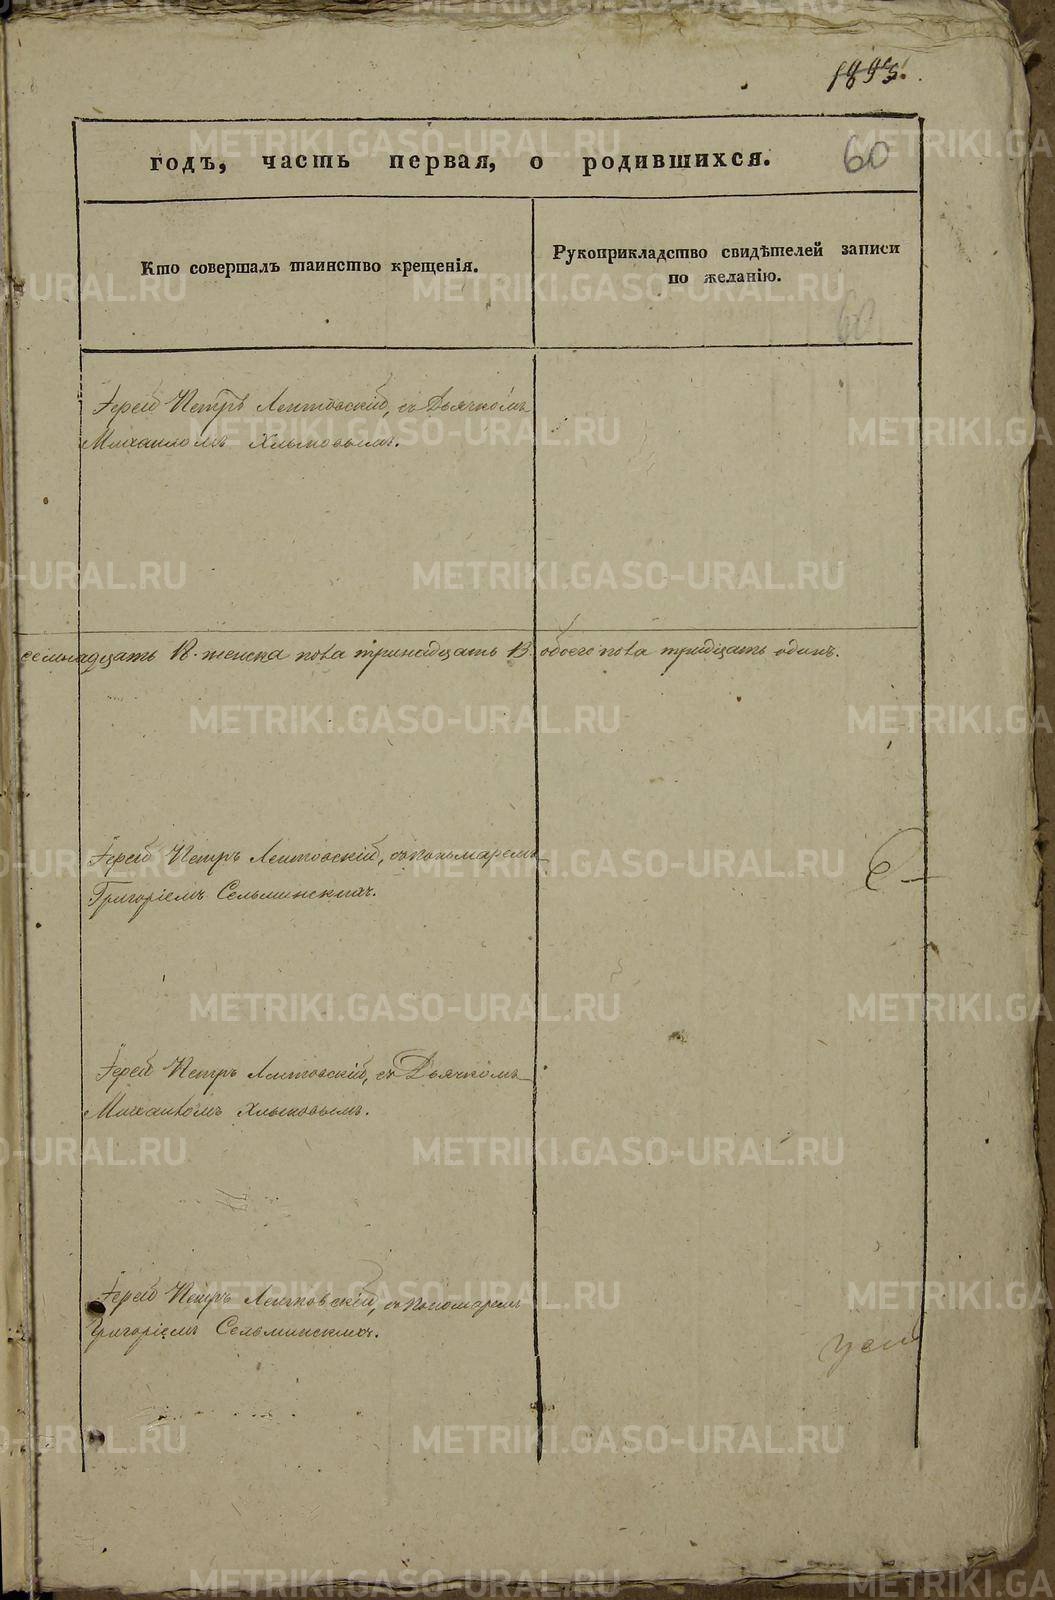 годъ, часть первая, о родившихся. 60
Кто совершалъ таинство крещенія.
Рукоприкладство свидѣтелей записи
по желанію.
60
Іерей Петръ Лентовскій, съ Дьячкомъ
Михаиломъ Хлыновымъ.
семнадцать женска пола тринадцать 13. обоего пола тридцать одинъ.
Іерей Петръ Лентовскій, съ пономаремъ
Григоріемъ Сельминскимъ.
Іерей Петръ Лентовскій, съ Дьячкомъ
Михаиломъ Хлыновымъ.
Іерей Петръ Лентовскій, съ пономаремъ
Григоріемъ Сельминскимъ.
METRIKI.GASO-URAL.RU